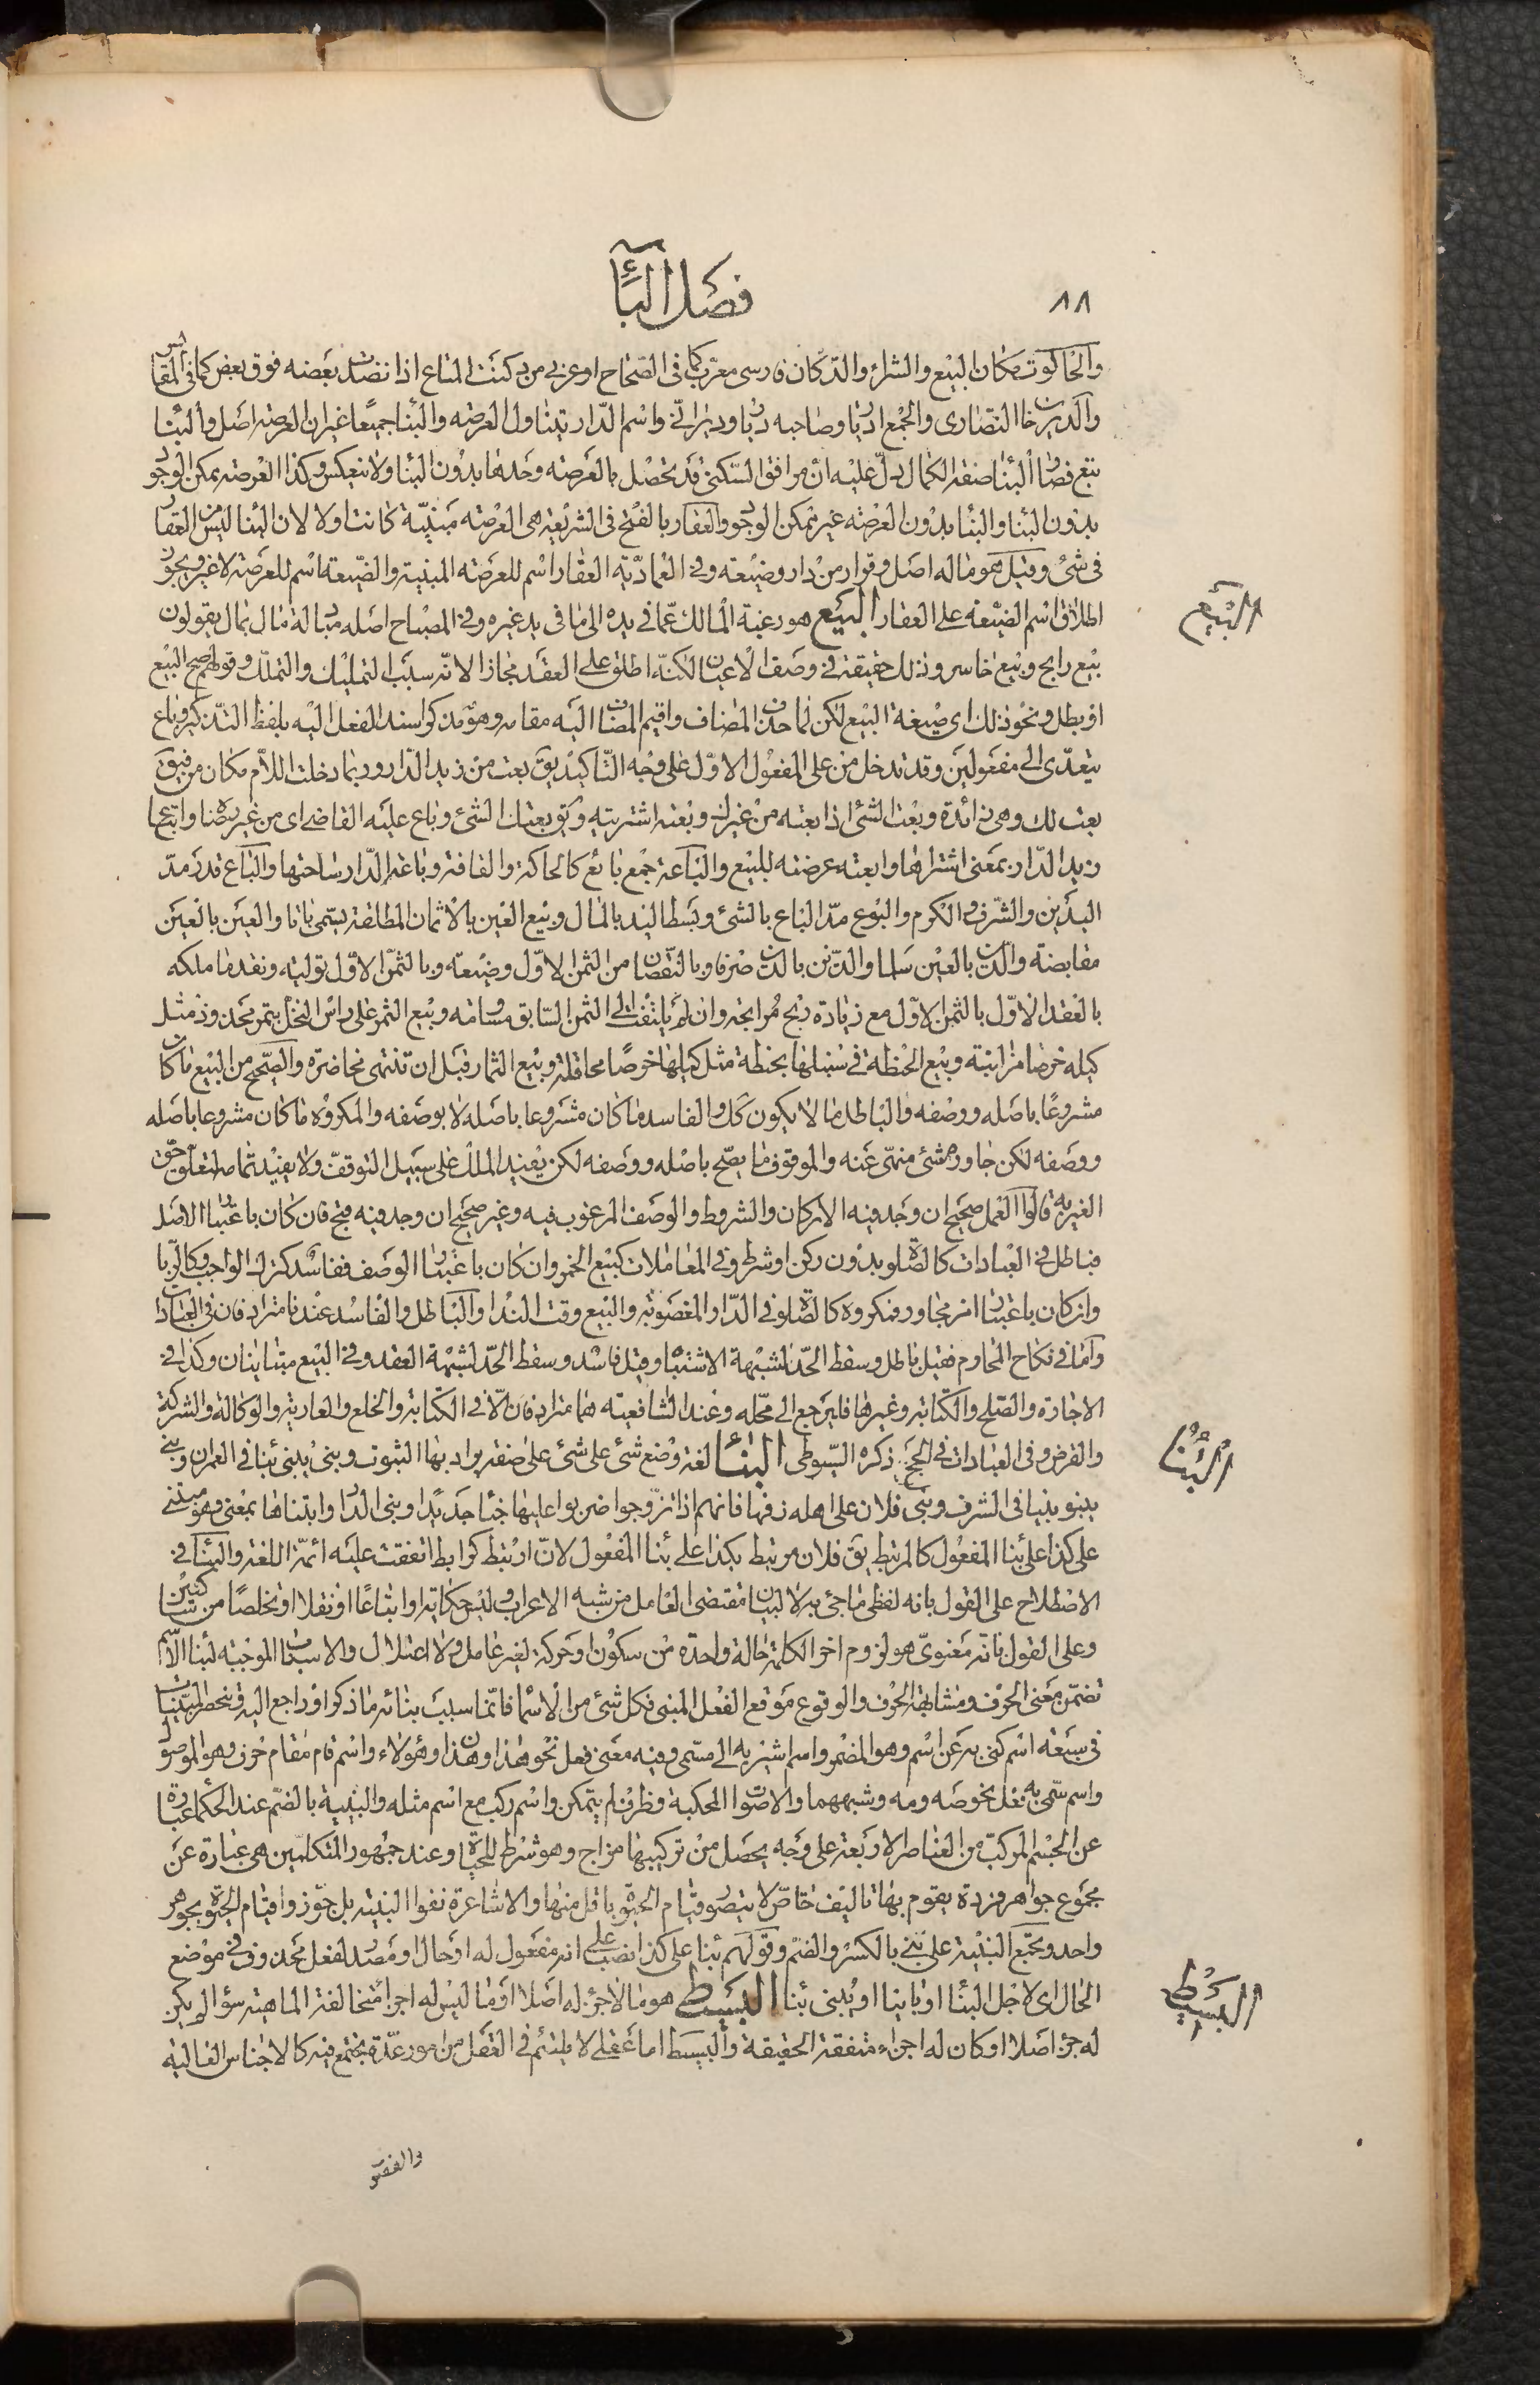 ٨٨
فصل الباء
والحانوت مكان البيع والشراء والدكان فارسى معرب كما فى الصحاح او عربى من دكنت المتاع اذا نضدت بعضه فوق بعض كما فى المقاييس
والدير خان النصارى والجمع اديار وصاحبه ديار وديرانى واسم الدار يتناول العرصه والبناء جميعا غير ان العرصه اصل والبناء
تبع فصار البناء صفة الكمال يدل عليه ان مرافق السكنى قد تحصل بالعرصه وحدها بدون البناء ولا ينعكس وكذا العرصه ممكن الوجود
بدون البناء والبناء بدون العرصه غير ممكن الوجود والعقار بالفتح فى الشريعة هى العرصه مبنية كانت اولا لان البناء ليس من العقار
فى شئ وقيل هو ماله اصل وقرار من دار وضيعه وفى العمادية العقار اسم للعرصه المبنية والضيعة اسم للعرصه لا غير ويجوز
اطلاق اسم الضيعه على العقار البيع هو رغبة المالك عما فى يده الى ما فى يد غيره وفى المصباح اصله مبادلة مال بمال يقولون
بيع رابح وبيع خاسر وذلك حقيقة فى وصف الاعيان لكنه اطلق على العقد مجازا لانه سبب التمليك والتملك وقولهم صح البيع
او بطل ونحو ذلك اى صيغة البيع لكن لما حذف المضاف واقيم المضاف اليه مقامه وهو مذكر اسند الفعل اليه بلفظ التذكير وباع
يتعدى الى مفعولين وقد تدخل من على المفعول الاول على وجه التأكيد يق بعت من زيد الدار وربما دخلت اللام مكان من فيق
بعت لك وهى زائدة وبعت الشئ اذا بعته من غيرك وبعته اشتريته ويق بعتك الشئ وباع عليه القاضى اى من غير رضاه وابتاع
زيد الدار بمعنى اشتراها وابعته عرضته للبيع والباعة جمع بائع كالحاكة والقافة وباعة الدار ساحتها والباع قدر مد
اليدين والشرف والكرم والبوع مد الباع بالشئ وبسط اليد بالمال وبيع العين بالاثمان المطلقة يسمى باتا والعين بالعين
مقايضة والدين بالعين سلما والدين بالدين صرفا وبالنقصان من الثمن الاول وضيعة وبالثمن الاول تولية ونقد ما ملكه
بالعقد الاول بالثمن الاول مع زيادة ربح مرابحة وان لم يلتفت الى الثمن السابق مساومة وبيع الثمر على راس النخل بتمر مجذوذ مثل
كيله خرصا مزابنة وبيع الحنطة فى سنبلها بحنطة مثل كيلها خرصا محاقلة وبيع الثمار قبل ان تنتهى مخاضرة والصحيح من البيع ما كان
مشروعا باصله ووصفه والباطل ما لا يكون كك والفاسد ما كان مشروعا باصله لا بوصفه والمكروه ما كان مشروعا باصله
ووصفه لكن جاوره شئ منهى عنه والموقوف ما يصح باصله ووصفه لكن يفيد الملك على سبيل التوقف ولا يفيد تمامه لتعلق حق
الغير به قالوا العمل صحيح ان وجد فيه الاركان والشروط والوصف المرغوب فيه وغير صحيح ان وجد فيه قبح فان كان باعتبار الاصل
فباطل فى العبادات كالصلوة بدون ركن او شرط وفى المعاملات كبيع الخمر وان كان باعتبار الوصف ففاسد كترك الواجب وكالربا
وان كان باعتبار امر مجاور فمكروه كالصلوة فى الدار المغصوبة والبيع وقت النداء والباطل والفاسد عندنا مترادفان فى العبادات
واما فى نكاح المحارم فقيل باطل وسقط الحد لشبهة الاشتباه وقيل فاسد وسقط الحد لشبهة العقد وفى البيع متباينان وكذا فى
الاجارة والصلح والكتابة وغيرها فليرجع الى محله وعند الشافعية هما مترادفان الا فى الكتابة والخلع والعارية والوكالة والشركة
والقرض وفى العبادات فى الحج ذكره السيوطى البناء لغة وضع شئ على شئ على صفة يراد بها الثبوت وبنى يبنى بناء فى العمران وبنى
يبنو بنيا فى الشرف وبنى فلان على اهله زفها فانهم اذا تزوجوا ضربوا عليها خباء جديدا وبنى الدار وابتناها بمعنى وهو مبتنى
على كذا على بناء المفعول كالمرتبط يق فلان مرتبط بكذا على بناء المفعول لان ارتبط كرابط اتفقت عليه ائمة اللغة والبناء فى
الاصطلاح على القول بانه لفظى ما جئ به لا لبيان مقتضى العامل من شبه الاعراب وليس حكاية او اتباعا او نقلا او تخلصا من ساكنين
وعلى القول بانه معنوى هو لزوم اخر الكلمة حالة واحدة من سكون او حركة لغير عامل ولا اعتلال والاسباب الموجبة لبناء الاسم
تضمن معنى الحرف ومشابهة الحرف والوقوع موقع الفعل المبنى فكل شئ من الاسماء فانما سبب بنائه ما ذكر او راجع اليه وتنحصر المبنيات
فى سبعة اسم كنى به عن اسم وهو المضمر واسم اشير به الى مسمى وفيه معنى فعل نحو هذا وهذان وهؤلاء واسم قام مقام حرف وهو الموصول
واسم سمى به فعل نحو صه ومه وشبههما والاصوات المحكية وظرف لم يتمكن واسم ركب مع اسم مثله والبنية بالضم عند الحكماء عبارة
عن الجسم المركب من العناصر الاربعة على وجه يحصل من تركيبها مزاج وهو شرط للحياة وعند جمهور المتكلمين هى عبارة عن
مجموع جواهر فردة يقوم بها تاليف خاص لا يتصور قيام الحيوة باقل منها والاشاعرة نفوا البنية بل جوزوا قيام الحيوة بجوهر
واحد ويجمع البنية على بنى بالكسر والضم وقولهم بناء على كذا نصب على انه مفعول له او حال او مصدر لفعل محذوف فى موضع
الحال اى لاجل البناء او بانيا او يبنى بناء البسيط هو ما لا جزء له اصلا او ما ليس له اجزاء متخالفة الماهية سواء لم يكن
له جزء اصلا او كان له اجزاء متفقة الحقيقة والبسيط اما عقلى لا يلتئم فى العقل من امور عدة تجتمع فيه كالاجناس العالية
البيع
البناء
البسيط
والفصول